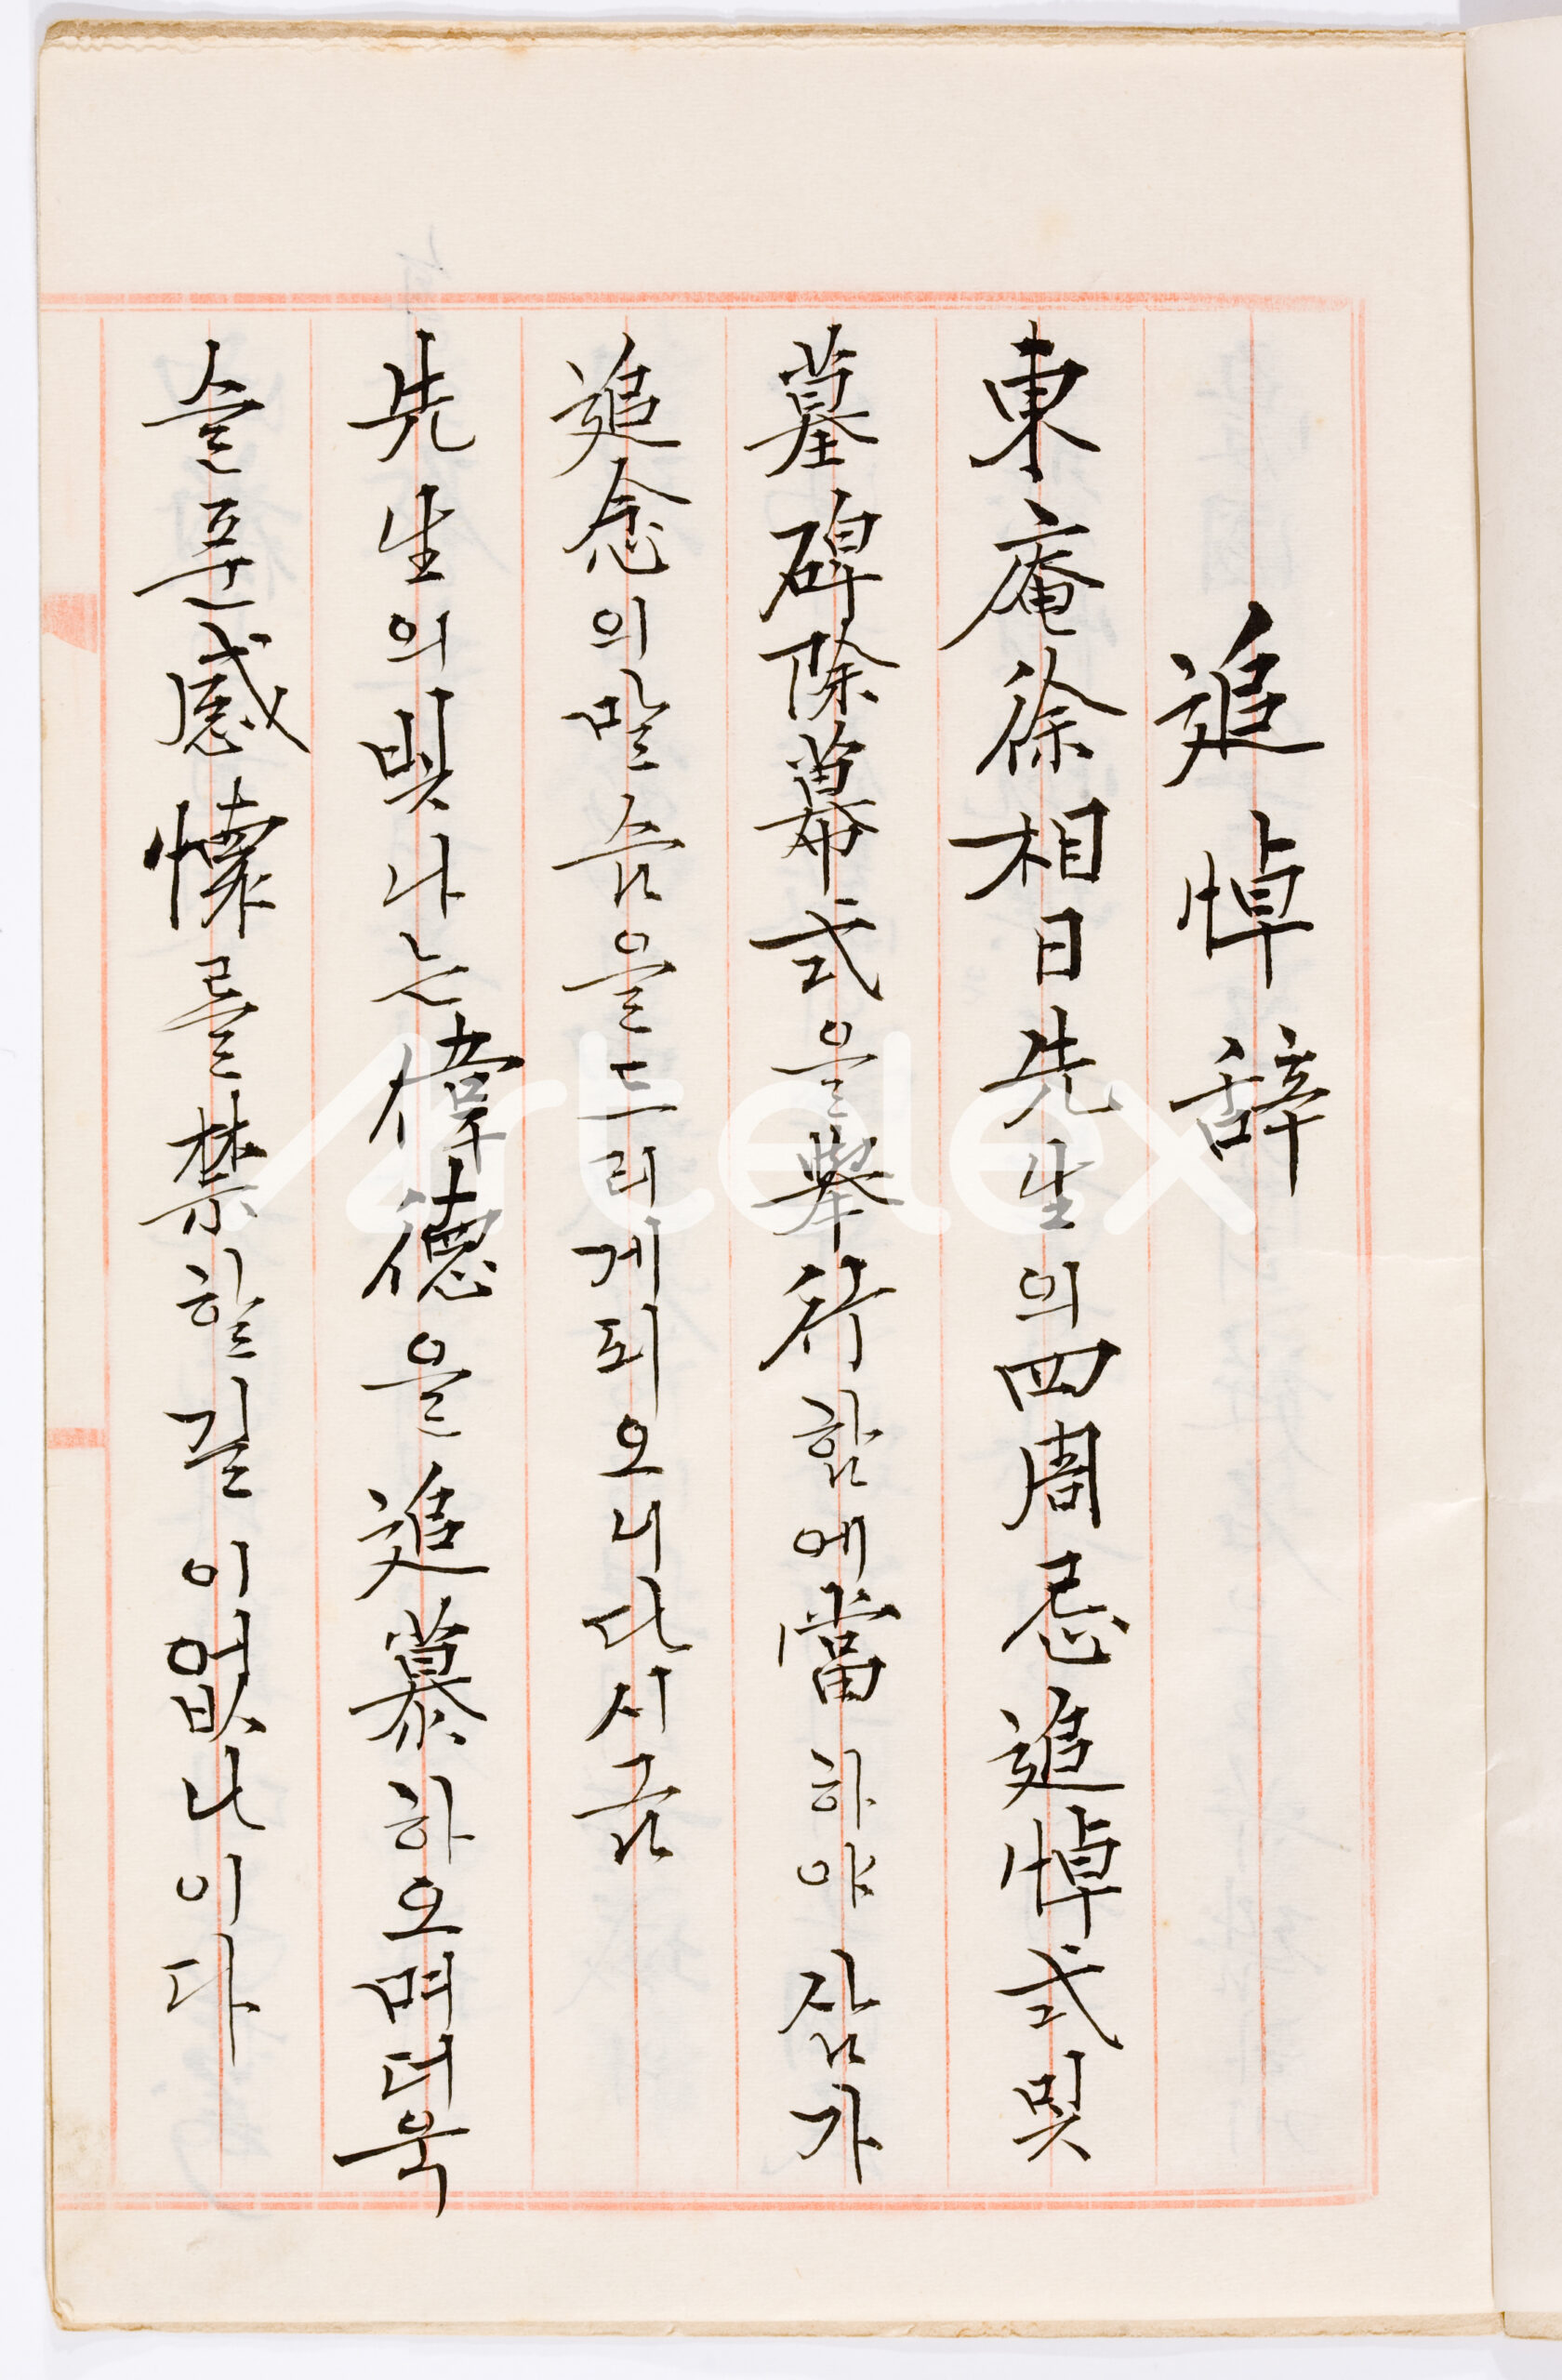 追悼辞
東庵徐相日先生의四周忌追悼式및
墓碑除幕式을擧行함에當하야잠가
追念의말슴을드리게되오니다시금
先生의빛나는偉德을追慕하오며더욱
슬푼感懷를禁할길이없나이다
artelex